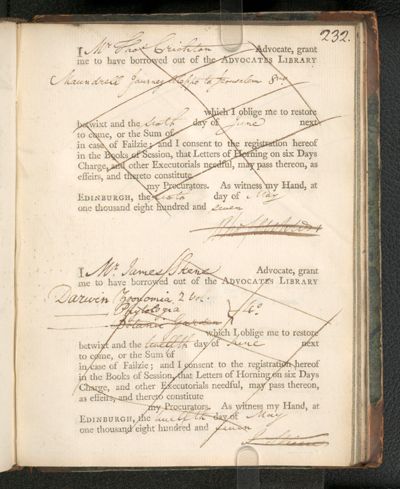 232.
I Mr Thos Crichton Advocate, grant
me to have borrowed out of the ADVOCATES LIBRARY
Maundrell Journey Aleppo to Jerusalem 8vo
which I oblige me to restore
betwixt and the sixth day of June next
to come, or the Sum of
in case of Failzie; and I consent to the registration hereof
in the Books of Session, that Letters of Horning on six Days
Charge, and other Executorials needful, may pass thereon, as
effeirs, and thereto constitute
my Procurators. As witness my Hand, at
EDINBURGH, the sixth day of May
one thousand eight hundred and seven
I Mr James Skene Advocate, grant
me to have borrowed out of the ADVOCATES LIBRARY
Darwin Zoonomia 2 Vo.
Phytologia
Botanic Garden } 4o.
which I oblige me to restore
betwixt and the twelfth day of June next
to come, or the Sum of
in case of Failzie; and I consent to the registration hereof
in the Books of Session, that Letters of Horning on six Days
Charge, and other Executorials needful, may pass thereon,
as effeirs, and thereto constitute
my Procurators. As witness my Hand, at
EDINBURGH, the twelfth day of May
one thousand eight hundred and seven